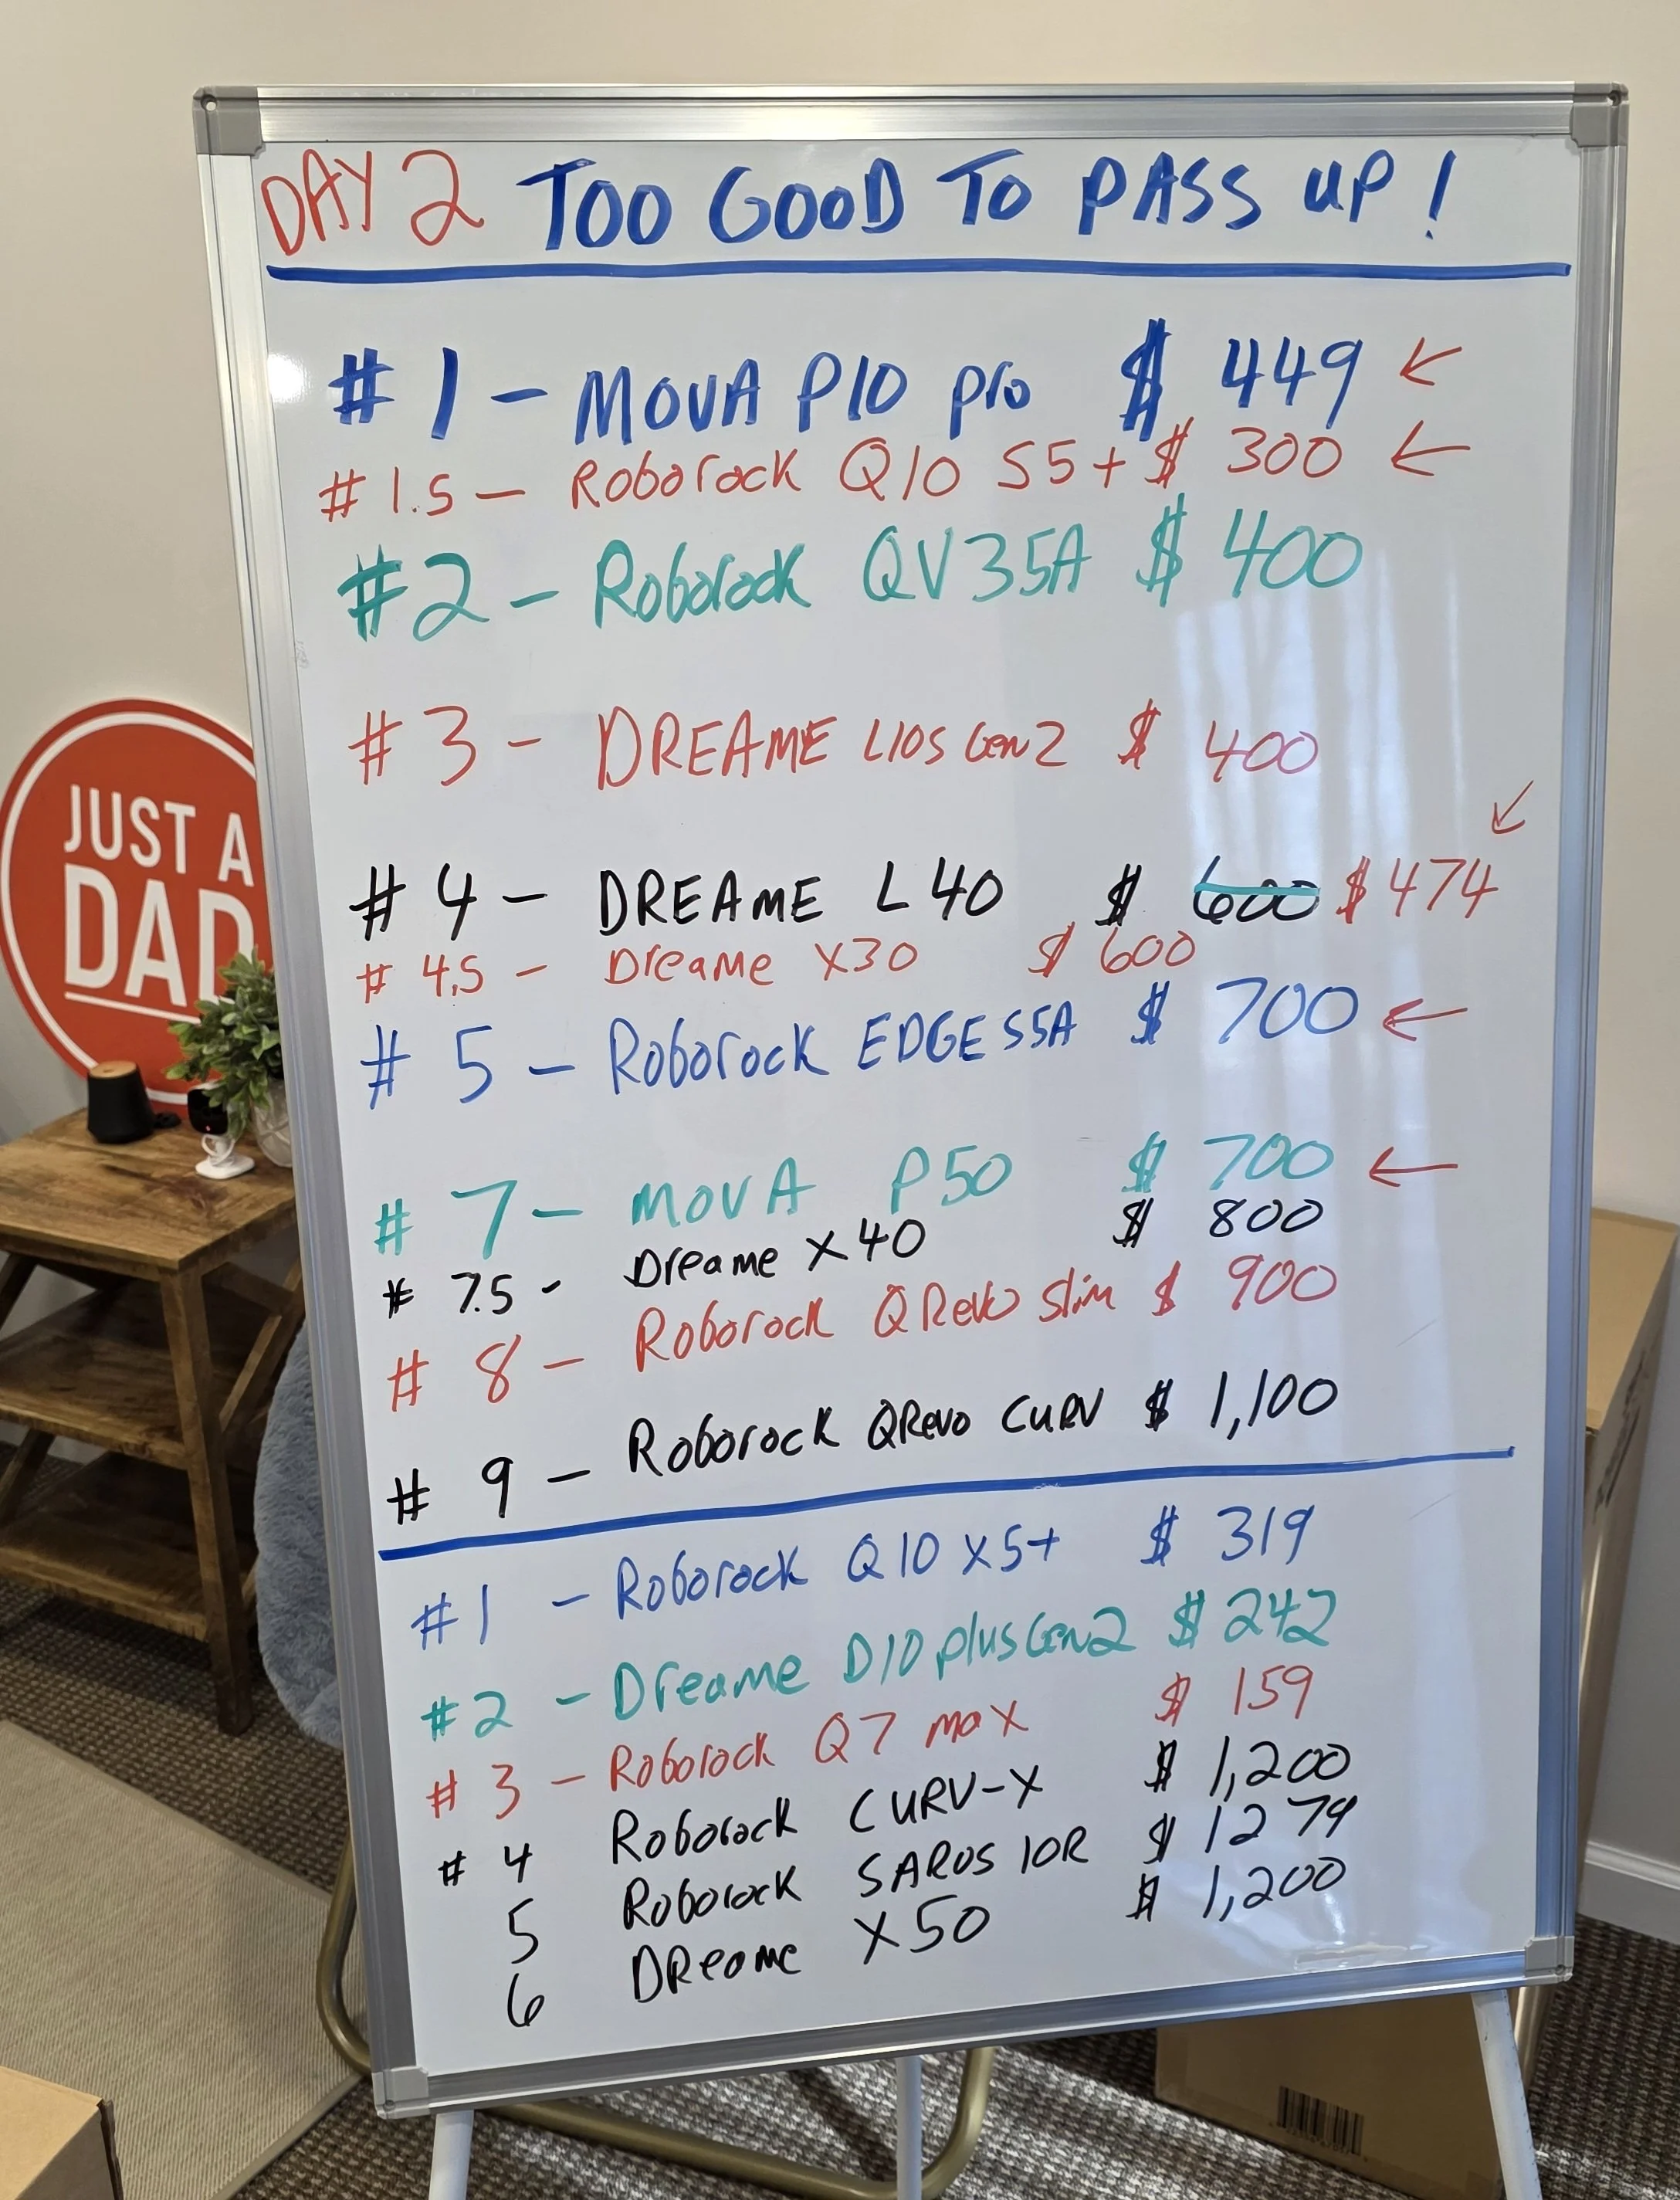 DAY 2 TOO GOOD TO PASS UP!
#1 - MOVA P10 pro $ 449 ←
#1.5 - Roborock Q10 S5+ $ 300 ←
#2 - Roborock QV35A $ 400
#3 - DREAME L10S Gen2 $ 400
#4 - DREAME L40 $ 600 $474 ←
#4.5 - Dreame X30 $ 600
#5 - Roborock EDGE S5A $ 700 ←
#7 - MOVA P50 $ 700 ←
#7.5 - Dreame X40 $ 800
#8 - Roborock QRevo Slim $ 900
#9 - Roborock QRevo CURV $ 1,100
#1 - Roborock Q10 X5+ $ 319
#2 - Dreame D10 plus Gen2 $ 242
#3 - Roborock Q7 max $ 159
#4 Roborock CURV-X $ 1,200
5 Roborock SAROS 10R $ 1279
6 DReame X50 $ 1,200
JUST A
DAD